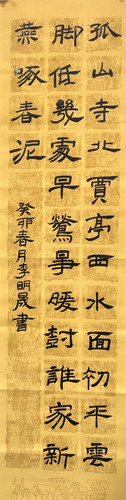 孤山寺北賈亭西水面初平雲
脚低幾處早鶯爭暖封誰家新
燕啄春泥
癸卯春月李明晟書